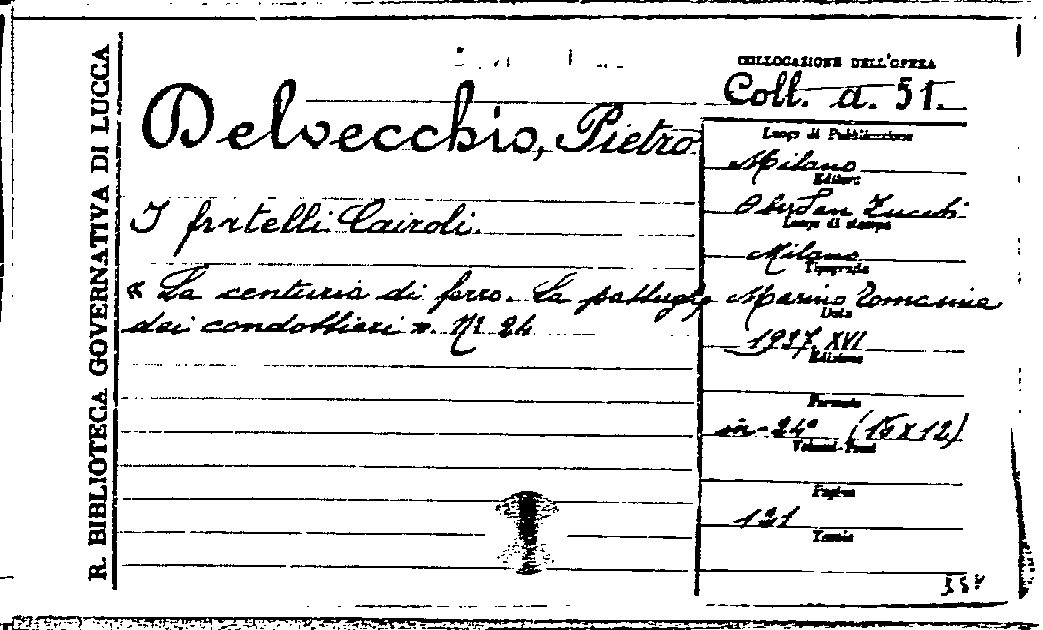 R. BIBLIOTECA GOVERNATIVA DI LUCCA
COLLOCAZIONE DELL'OPERA
Coll. a. 51.
Delvecchio, Pietro
I fratelli Cairoli.
« La centuria di ferro. La pattuglia
dei condottieri ». Nº 24
Luogo di Pubblicazione
Milano
Editore
Oberdan Zucchi
Luogo di stampa
Milano
Tipografia
Marino
Data
1937. XVI
Edizione
Formato
in-24º (16 x 12)
Volumi-Tomi
Pagine
121
Tavole